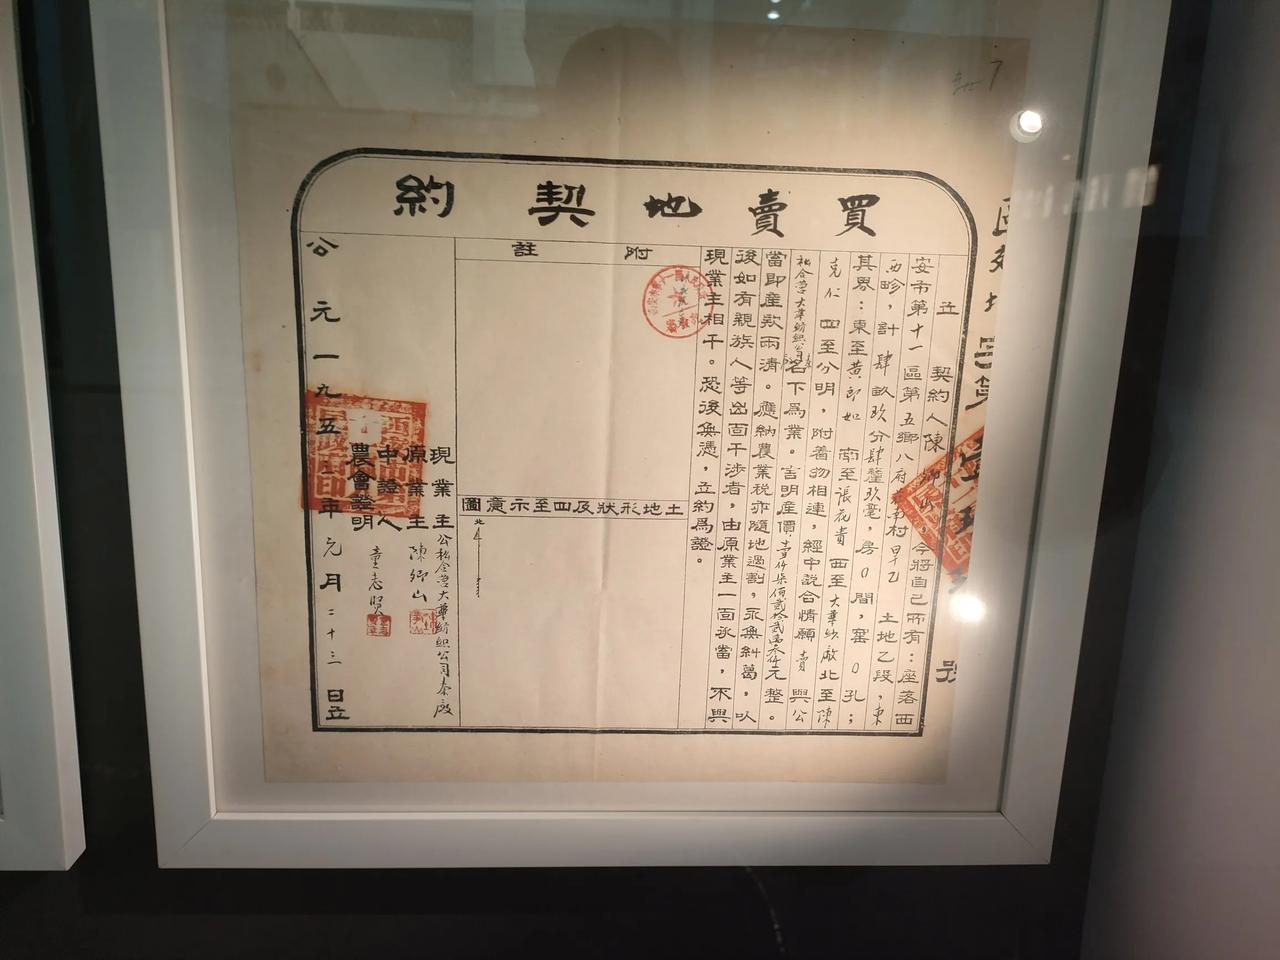 買賣地契約
立契約人陳卿山,今將自己所有:座落西
安市第十一區第五鄉八府 村旱乙 土地乙段,東
西畛,計肆畝玖分肆釐玖毫,房0間,窰0孔;
其界:東至黃郎如 南至張花貴 西至大華紗廠 北至陳
克仁 四至分明,附着物相連,經中說合情願賣與公
私合營大華紡織公司 名下爲業。言明產價 仟柒佰貳拾貳萬叁仟元整。
當即產款兩清。應納農業稅亦隨地過割,永無糾葛,以
後如有親族人等出面干涉者,由原業主一面承當,不與
現業主相干。恐後無憑,立約爲證。
附註
土地形狀及四至示意圖
北
現業主 公私合營大華紡織公司秦廠
原業主 陳卿山
中證人
農會證明 童志賢
公元一九五 年元月二十三日立
號
7